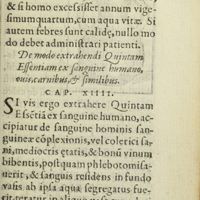 & si homo excessisset annum vige-
simumquartum, cum aqua vitæ. Si
autem febres sunt calidę, nullo mo
do debet administrari patienti.
De modo extrahendi Quintam
Essentiam ex sanguine humano,
ouis, carnibus, & similibus.
CAP. XIIII.
SI vis ergo extrahere Quintam
Essētiā ex sanguine humano, ac-
cipiatur de sanguine hominis san-
guineæ cōplexionis, vel colerici sa-
ni, mediocris ętatis, & bonū vinum
bibentis, post quam phlebotomisa-
uerit, & sanguis residens in fundo
vasis ab ipsa aqua segregatus fue-